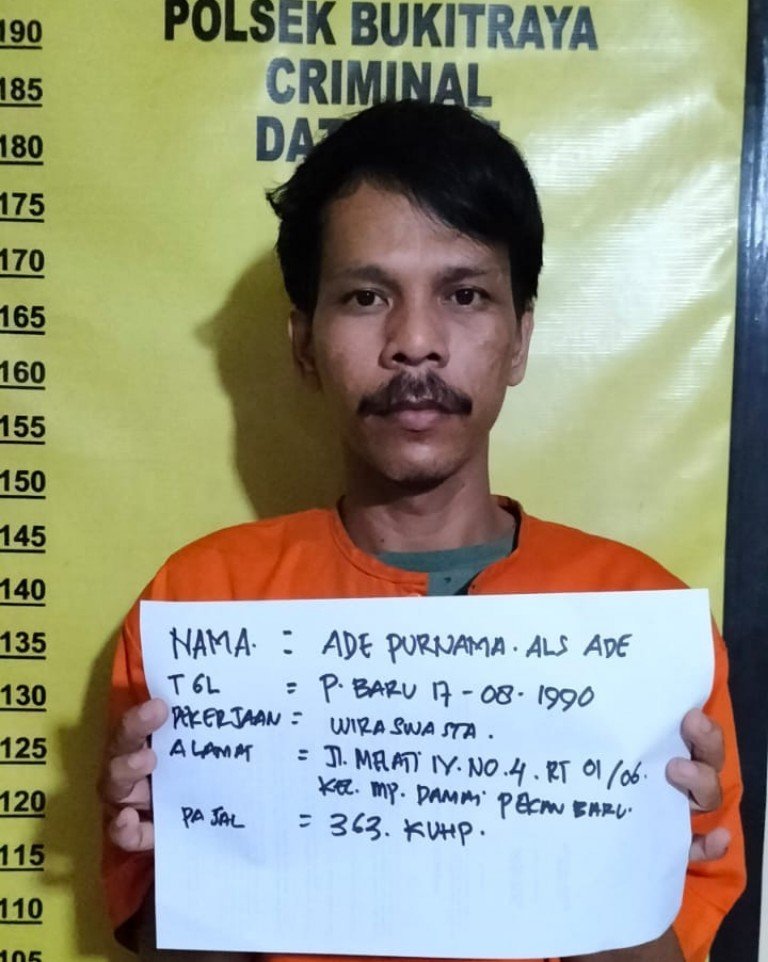 POLSEK BUKITRAYA
CRIMINAL
190
185
180
175
170
165
160
155
150
145
140
135
130
125
120
115
110
105
NAMA. : ADE PURNAMA. ALS ADE
TGL = P. BARU 17-08-1990
PEKERJAAN = WIRASWASTA.
ALAMAT = Jl. MELATI IV. NO. 4. RT 01/06.
KEL. MP. DAMAI PEKAN BARU.
PAJAL = 363. KUHP.